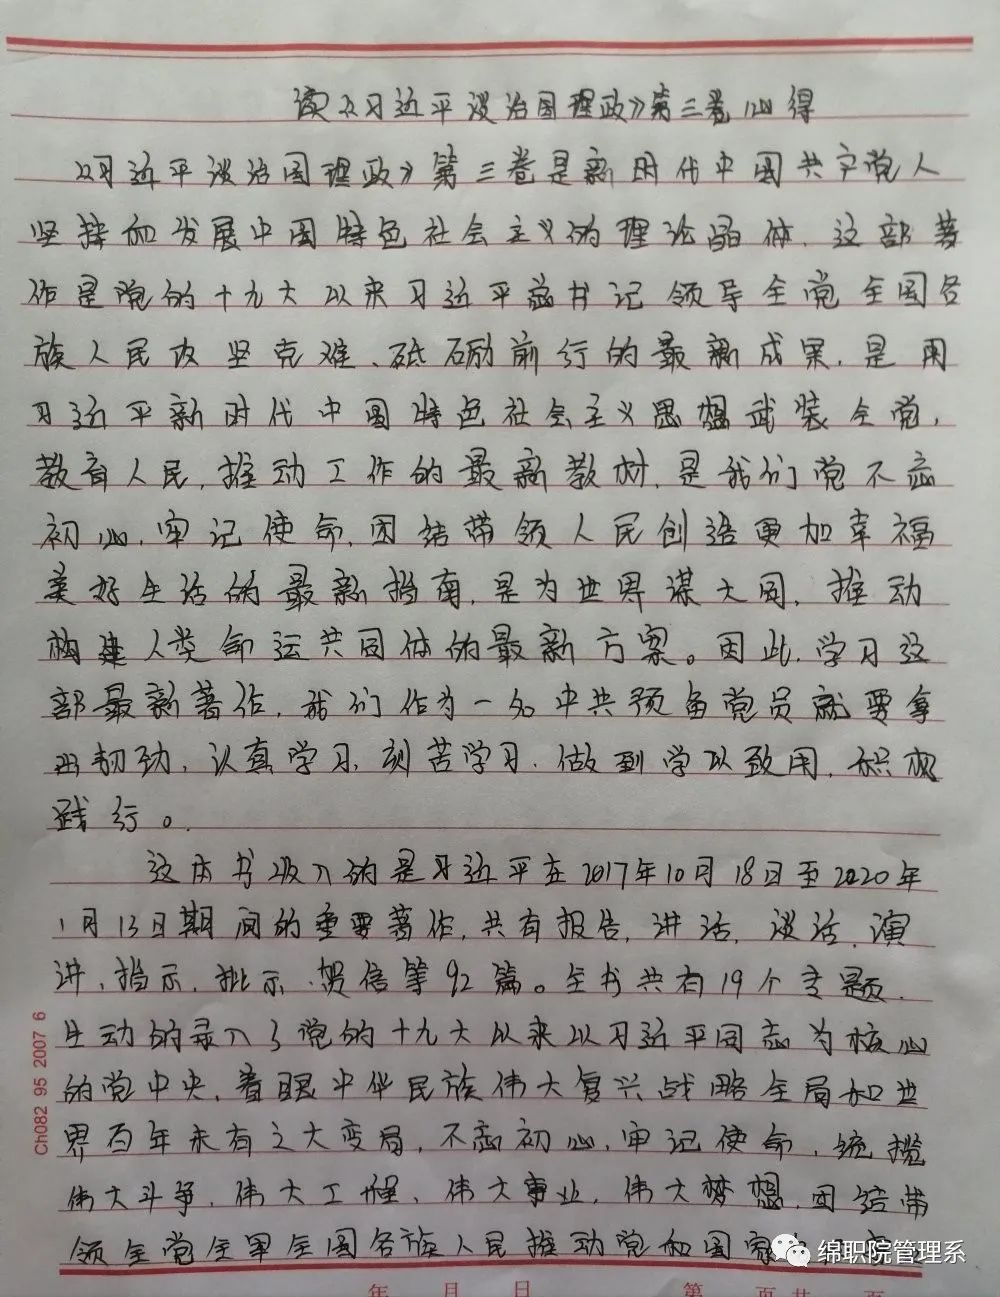 读《习近平谈治国理政》第三卷心得
《习近平谈治国理政》第三卷是新时代中国共产党人
坚持和发展中国特色社会主义的理论晶体，这部著
作是党的十九大以来习近平总书记领导全党全国各
族人民攻坚克难、砥砺前行的最新成果，是用
习近平新时代中国特色社会主义思想武装全党，
教育人民，推动工作的最新教材，是我们党不忘
初心，牢记使命，团结带领人民创造更加幸福
美好生活的最新指南，是为世界谋大同，推动
构建人类命运共同体的最新方案。因此，学习这
部最新著作，我们作为一名中共预备党员就要拿
出韧劲，认真学习，刻苦学习，做到学以致用，积极
践行。
这本书收入的是习近平在2017年10月18日至2020年
1月13日期间的重要著作，共有报告，讲话，谈话，演
讲，指示，批示，贺信等92篇。全书共有19个专题，
生动的录入了党的十九大以来以习近平同志为核心
的党中央，着眼中华民族伟大复兴战略全局和世
界百年未有之大变局，不忘初心，牢记使命，统揽
伟大斗争，伟大工程，伟大事业，伟大梦想，团结带
领全党全军全国各族人民推动党和国家
绵职院管理系
年 月 日 第 页共 页
Ch082 95 2007 6